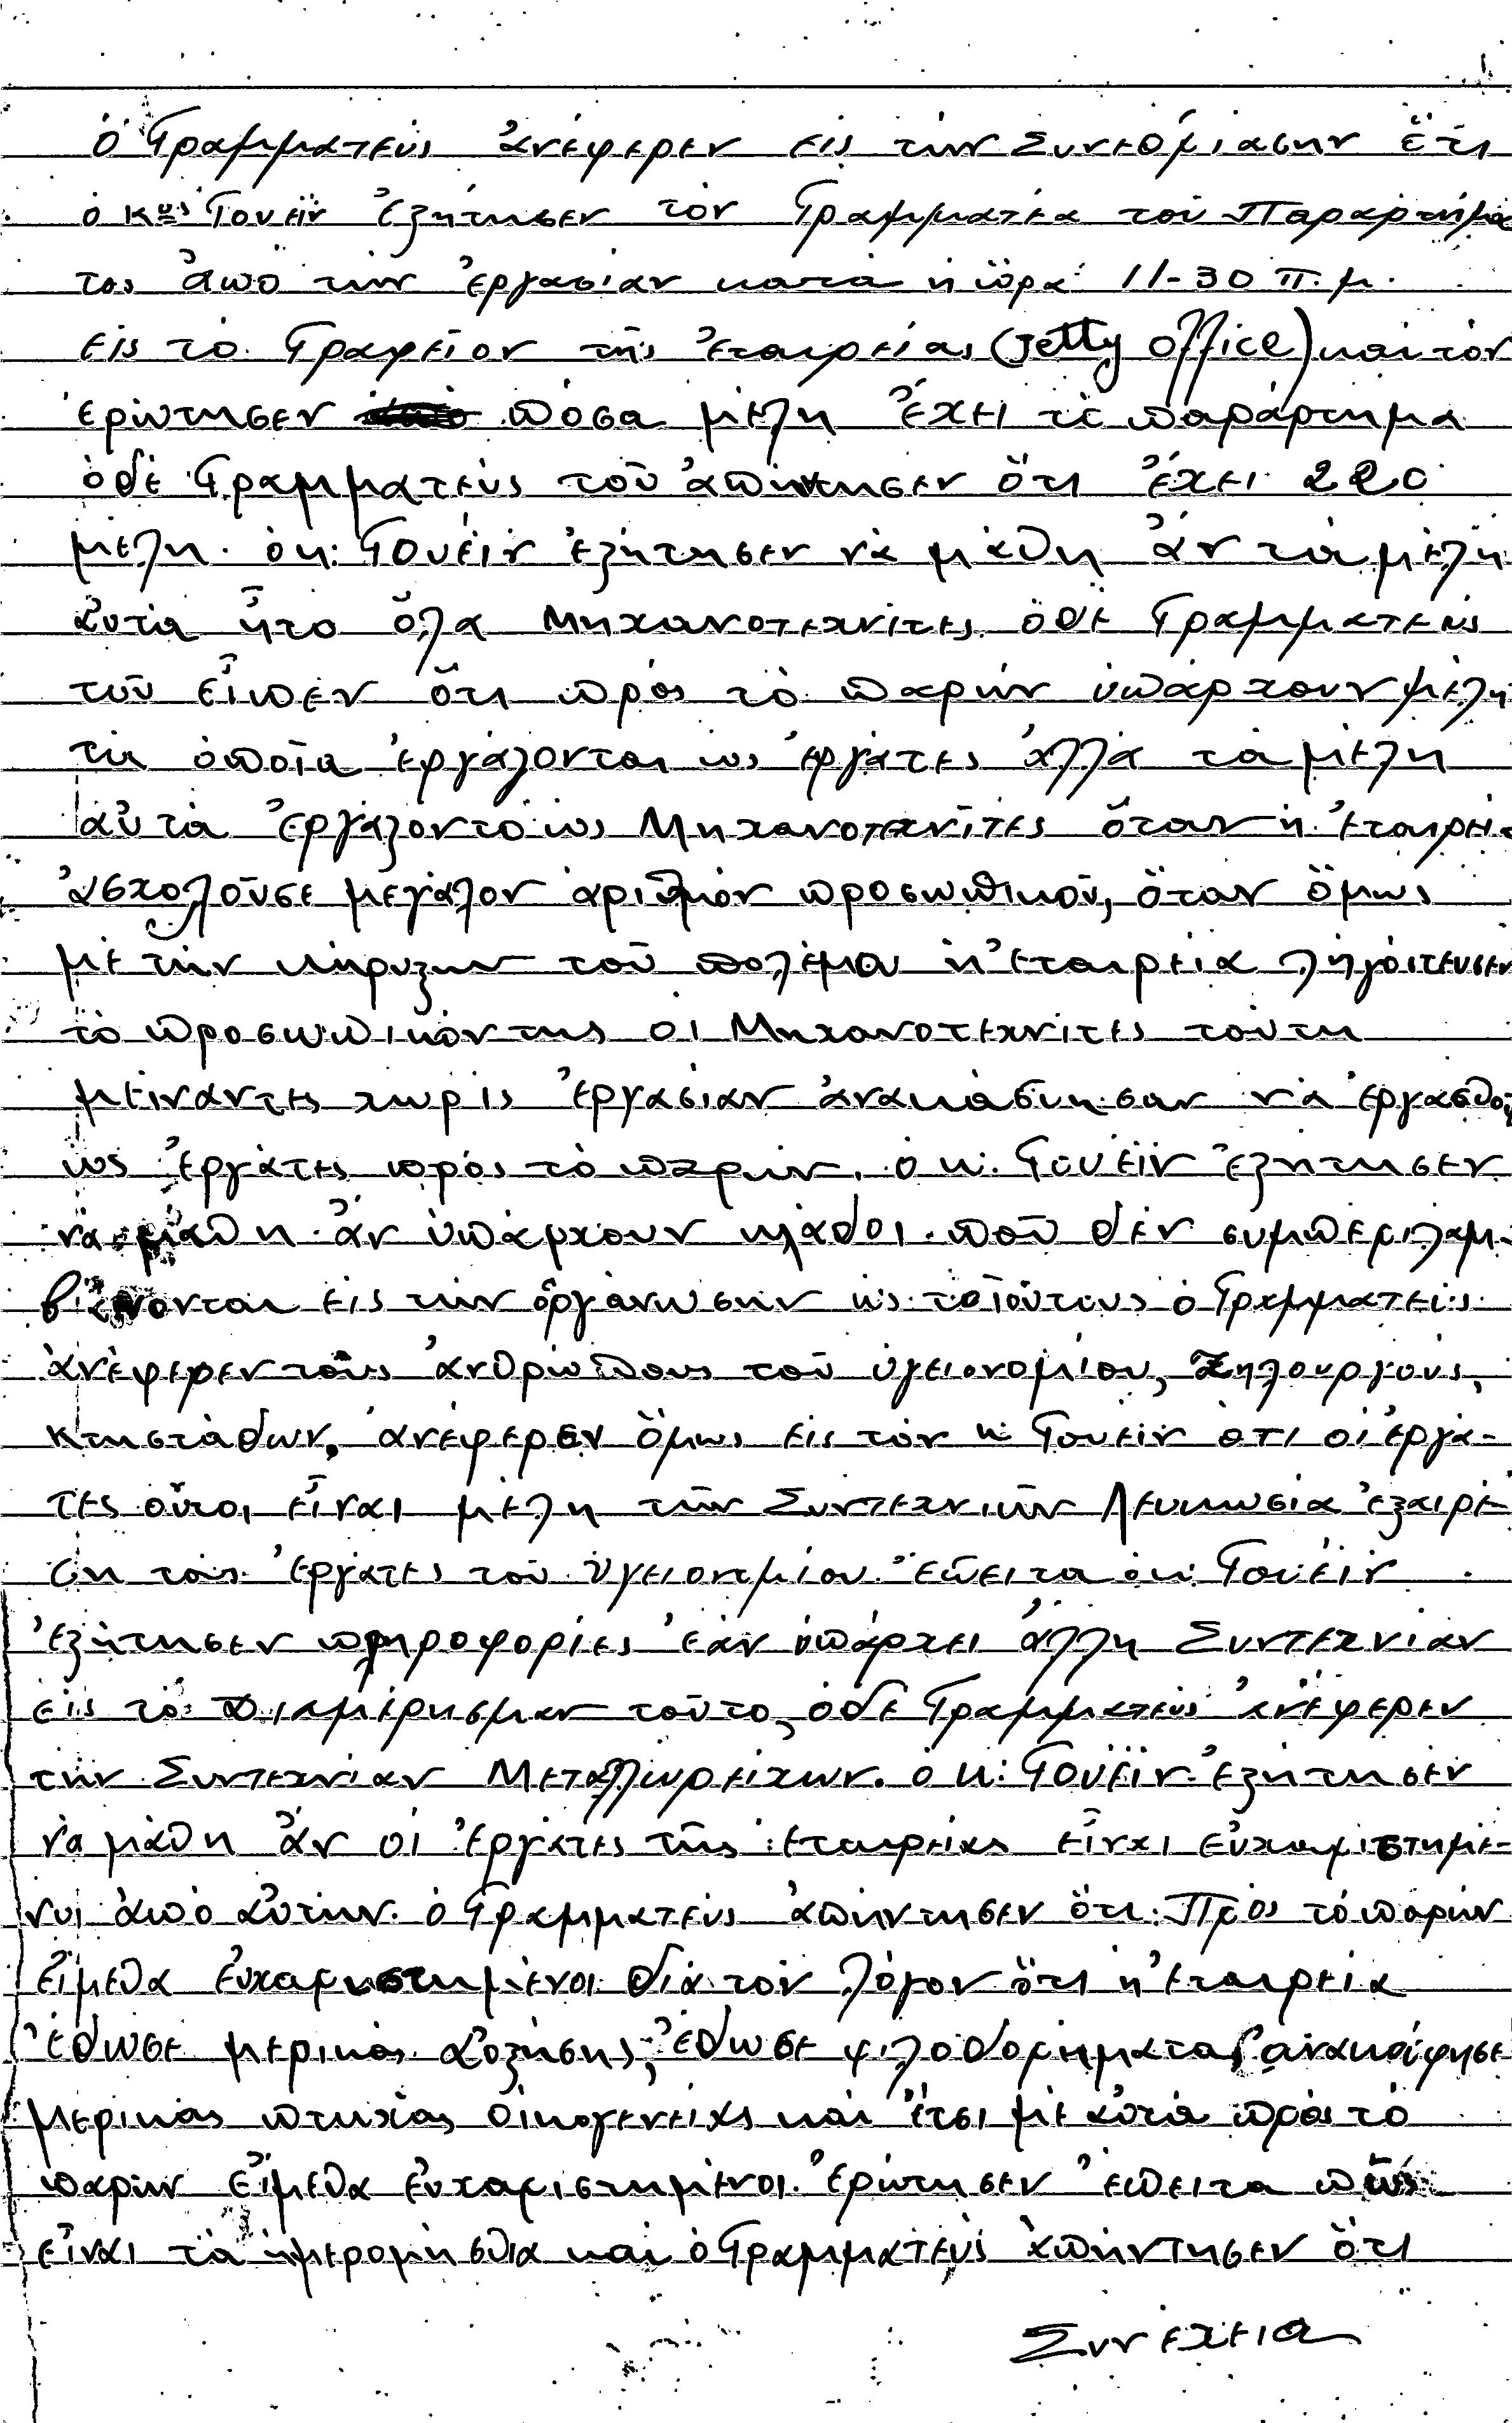 ὁ Γραμματεὺς ἀνέφερεν εἰς τὴν Συνεδρίασην ὅτι
ὁ κος Γουεῒν ἐζήτησεν τὸν Γραμματέα τοῦ Παραρτήμα
τος ἀπὸ τὴν ἐργασίαν κατὰ ἡ ὥρα 11-30 π.μ.
εἰς τὸ Γραφεῖον τῆς ἑταιρείας (Jetty Office) καὶ τὸν
ἐρώτησεν πόσα μέλη ἔχει τὸ παράρτημα
ὁ δὲ Γραμματεὺς τοῦ ἀπήντησεν ὅτι ἔχει 220
μέλη. ὁ κ: Γουέϊν ἐζήτησεν νὰ μάθη ἂν τὰ μέλη
αὐτὰ ἦτο ὅλα Μηχανοτεχνίτες ὁ δὲ Γραμματεὺς
τοῦ εἶπεν ὅτι πρὸς τὸ παρὴν ὑπάρχουν μέλη
τὰ ὁποῖα ἐργάζονται ὡς ἐργάτες ἀλλὰ τὰ μέλη
αὐτὰ ἐργάζοντο ὡς Μηχανοτεχνῖτες ὅταν ἡ ἑταιρεί
ἀσχολοῦσε μεγάλον ἀριθμὸν προσωπικοῦ, ὅταν ὅμως
μὲ τὴν κήρυξην τοῦ πολέμου ἡ ἑταιρεία ληγόστευσεν
τὸ προσωπικόν της οἱ Μηχανοτεχνίτες τοῦτη
μείναντες χωρὶς ἐργασίαν ἀνακάσθησαν νὰ ἐργασθοῦ
ὡς ἐργάτες πρὸς τὸ παρὴν. ὁ κ. Γουέϊν ἐζήτησεν
νὰ μάθη ἂν ὑπάρχουν κλάδοι ποῦ δὲν συμπεριλαμ-
βάνονται εἰς τὴν ὀργάνωσην ὡς τοιούτους ὁ Γραμματεὺς
ἀνέφερεν τοὺς ἀνθρώπους τοῦ ὑγειονομίου, Ξηλουργούς,
κτηστάδων, ἀνέφερεν ὅμως εἰς τὸν κ: Γουεὶν ὅτι οἱ ἐργά-
τες οὗτοι εἶναι μέλη τῶν Συντεχνιῶν Λευκωσία ἐξαιρέ-
ση τοὺς ἐργάτες τοῦ ὑγειονομίου. Ἔπειτα ὁ κ: Γουέϊν
ἐζήτησεν πληροφορίες ἐὰν ὑπάρχει ἄλλη Συντεχνίαν
εἰς τὸ διαμέρησμαν τοῦτο, ὁ δὲ Γραμματεὺς ἀνέφερεν
τὴν Συντεχνίαν Μεταλλωρείχων. ὁ κ: Γουέϊν ἐζήτησεν
νὰ μάθη ἂν οἱ ἐργάτες τῆς ἑταιρείας εἶναι εὐχαριστημέ-
νοι ἀπὸ αὐτὴν. ὁ Γραμματεὺς ἀπήντησεν ὅτι: Πρὸς τὸ παρὴν
εἴμεθα εὐχαρηστημένοι διὰ τὸν λόγον ὅτι ἡ ἑταιρεία
ἔδωσε μερικὰς αὐξήσης, ἔδωσε φιλοδορήματα, ἀνακούφησε
μερικὰς πτυχὰς οἰκογενείας καὶ ἔτσι μὲ αὐτὰ πρὸς τὸ
παρὴν εἴμεθα εὐχαριστημένοι. ἐρώτησεν ἔπειτα πῶς
εἶναι τὰ ἡμερομήσθια καὶ ὁ Γραμματεὺς ἀπήντησεν ὅτι
Συνέχεια